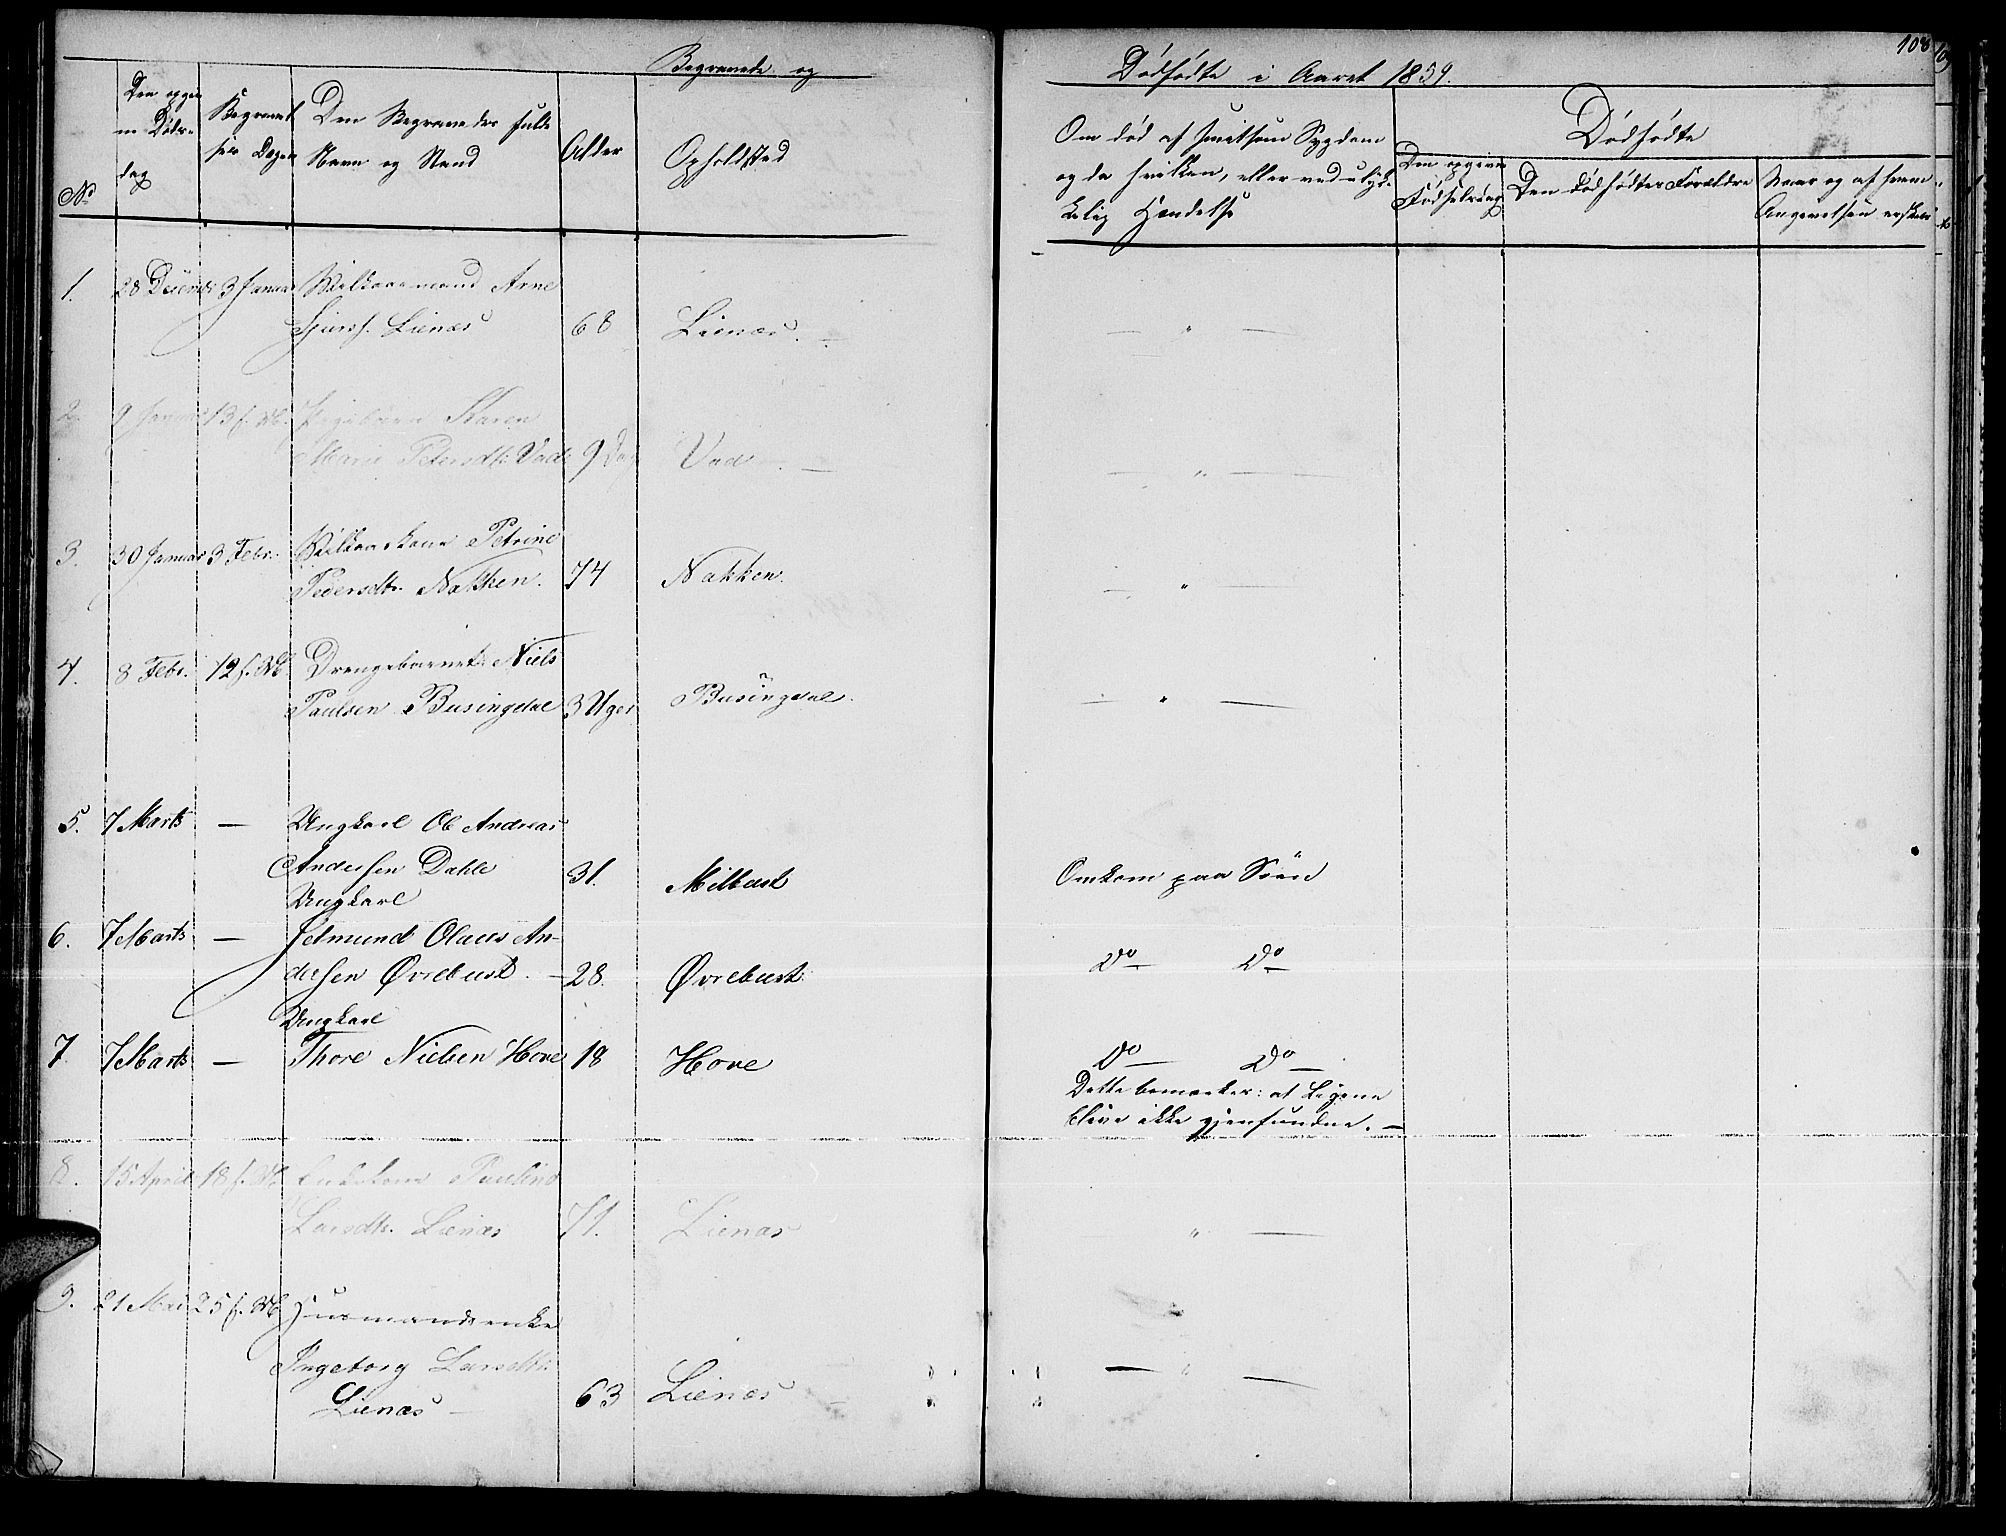 Begravede og
Dödfödte i Aaret 1859.
108
No
Den opgivne Döds-
dag
Begravel
ses Dagen
Den Begravedes fulde
Navn og Stand
Alder
Opholdsted
Om död af smitsom Sygdom
og da hvilken, eller ved ulyk-
kelig Hændelse
Dödfödte
Den opgivne
Födselsdag
Den dödfödtes Forældre
Naar og af hvem
Angivelsen er skeet
1. 28 Decembr 3 Januar Vilkaarsmand Arne
Sjurs. Lienæs 68 Lienæs. — " —
2. 9 Januar 13 f. M. Pigebarn Karen
Marie Petersdtr Vad 9 Dage Vad — " —
3. 30 Januar 3 Febr. Vilkaarskone Petrine
Pedersdtr. Nakken. 74 Nakken. — " —
4. 8 Febr. 12 f. M. Drengebarnet Niels
Paulsen Busingdal 3 Uger Busingdal. — " —
5. 7 Marts — Ungkarl Ole Andreas
Andersen Dahle 31. Mitbust Omkom paa Söen
Ungkarl
6. 7 Marts — Jetmund Olaus An-
dersen Øvrebust. — 28. Øvrebust. Do Do
Ungkarl
7. 7 Marts — Thore Nielsen Hove 18 Hove Do — Do —
Dette bemærkes: at Ligene
bleve ikke gjenfundne. —
8. 15 April 18 f. M. Enkekone Pauline
Larsdtr. Lienæs 71. Lienæs " —
9. 21 Mai 25 f. M. Husmandsenke
Ingeborg Larsdtr.
Lienæs — 63 Lienæs — " —